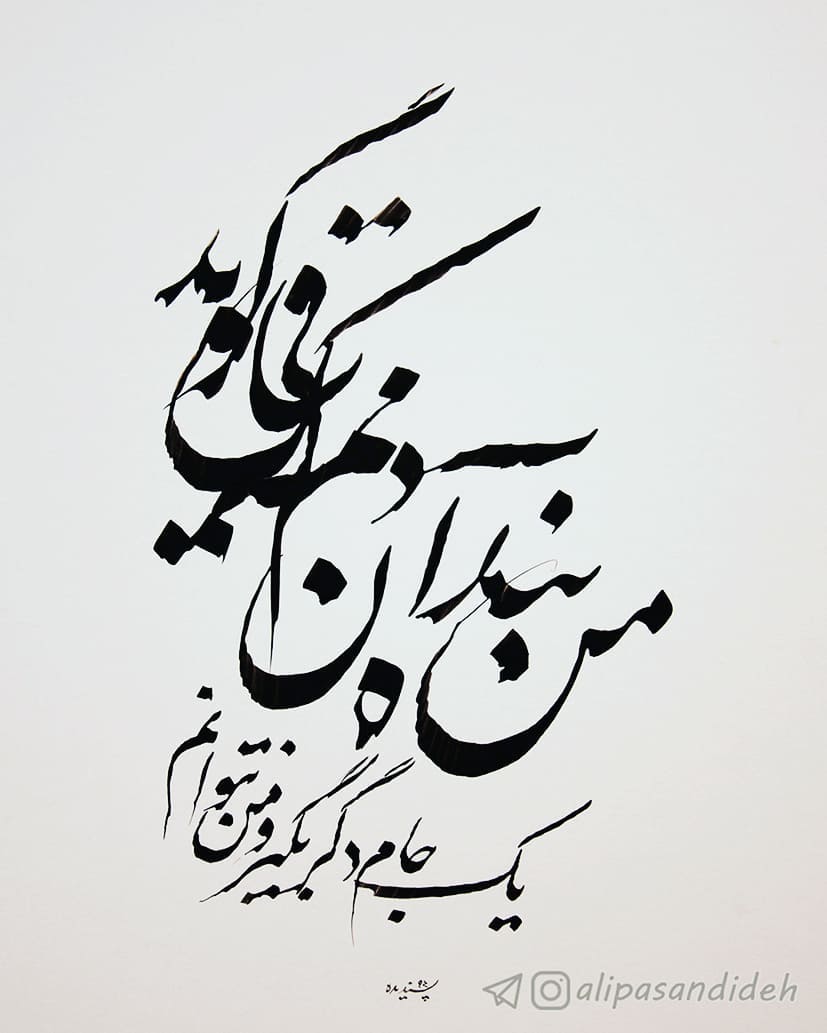 من بندهٔ آن دمم که ساقی گوید
یک جام دگر بگیر و من نتوانم
پسندیده
alipasandideh